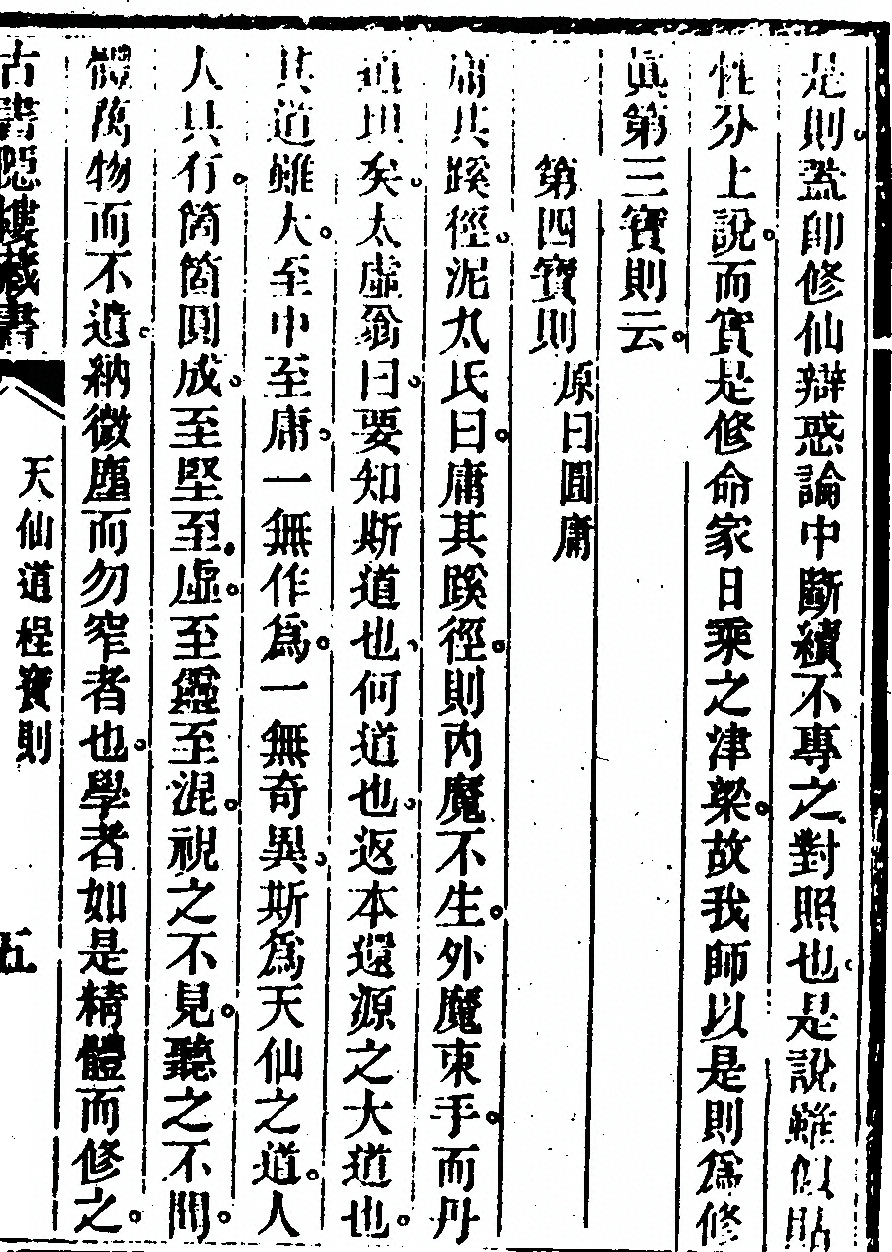 是則。蓋卽修仙辯惑論中斷續不專之對照也。是說雖似貼
性分上說。而實是修命家日乘之津梁。故我師以是則爲修
眞第三寶則云。
第四寶則 原曰圓庸
庸其蹊徑。泥丸氏曰。庸其蹊徑。則內魔不生。外魔束手。而丹
道坦矣。太虛翁曰。要知斯道也、何道也。返本還源之大道也。
其道雖大。至中至庸。一無作爲。一無奇異。斯爲天仙之道。人
人具有。箇箇圓成。至堅至虛。至靈至混。視之不見。聽之不聞。
體萬物而不遺。納微塵而勿窄者也。學者如是精體而修之。
天仙道程寶則
五
古書隱樓藏書